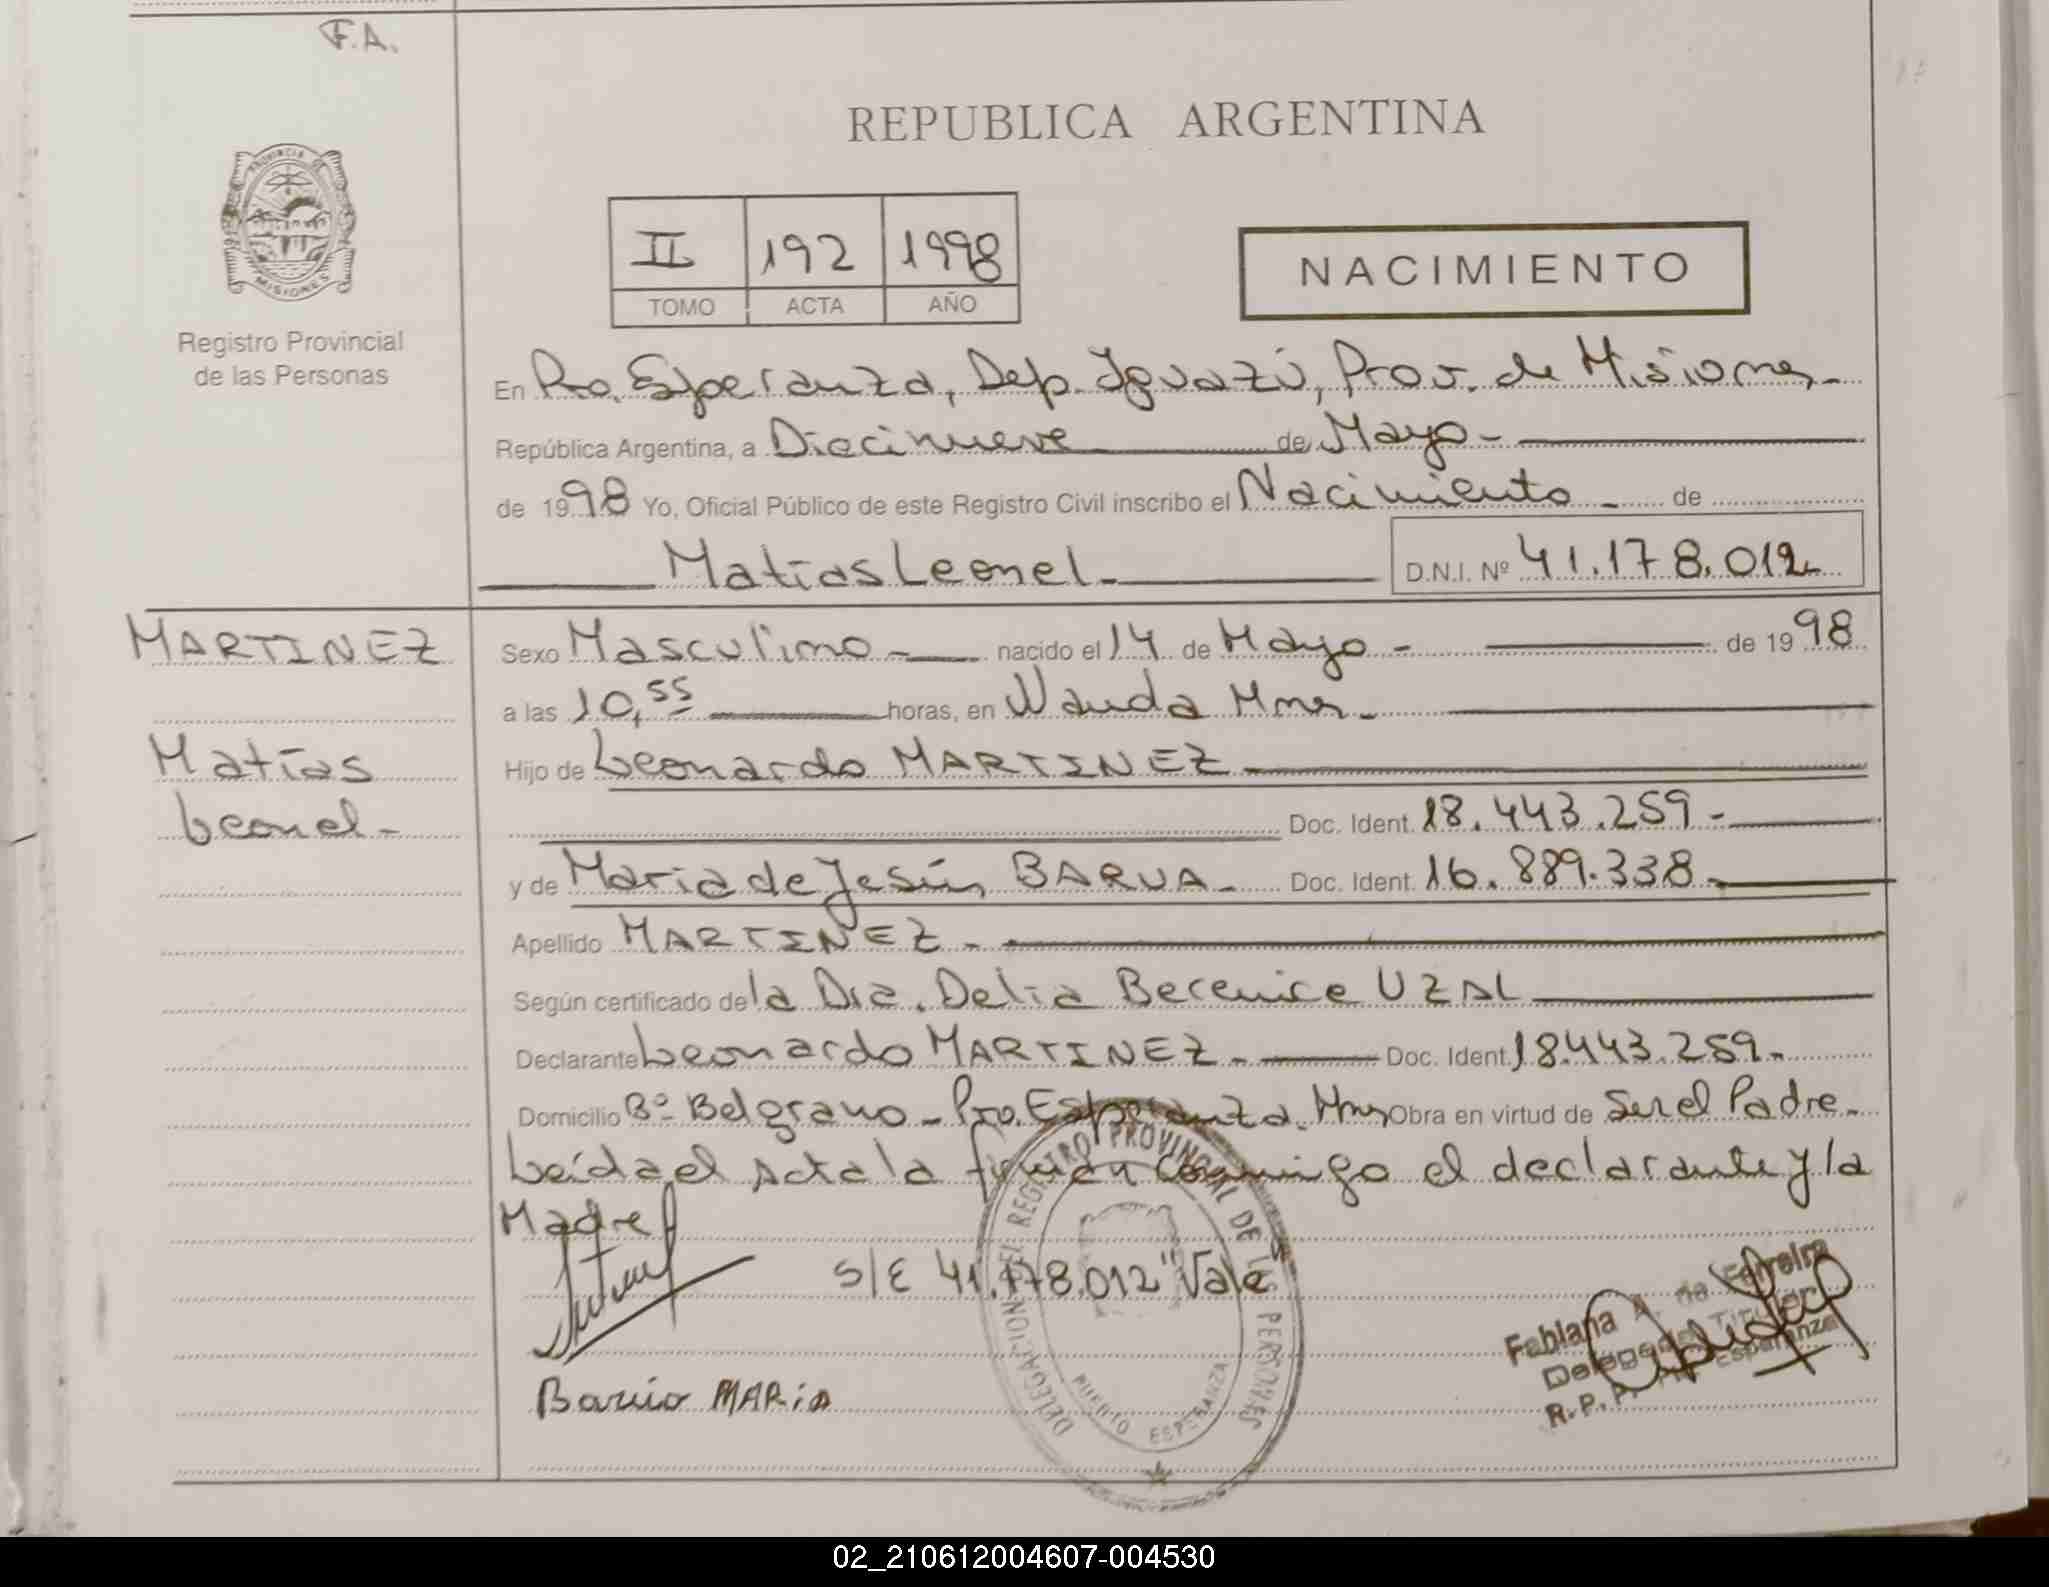 F.A.
REPUBLICA ARGENTINA
PROVINCIA DE MISIONES
II 192 1998
TOMO ACTA AÑO
NACIMIENTO
Registro Provincial
de las Personas
En Pto. Esperanza, Dep. Iguazú, Prov. de Misiones
República Argentina, a Diecinueve de Mayo
de 1998 Yo, Oficial Público de este Registro Civil inscribo el Nacimiento de
Matías Leonel
D.N.I. Nº 41.178.012
MARTINEZ
Matías
Leonel
Sexo Masculino nacido el 14 de Mayo de 1998
a las 10,55 horas, en Wanda Mnes
Hijo de Leonardo MARTINEZ
Doc. Ident. 18.443.259
y de Maria de Jesús BARUA Doc. Ident. 16.889.338
Apellido MARTINEZ
Según certificado de la Dra. Delia Berenice UZAL
Declarante Leonardo MARTINEZ Doc. Ident. 18.443.259
Domicilio Bº Belgrano - Pto. Esperanza. Mnes Obra en virtud de Ser el Padre
Leída el Acta la firman conmigo el declarante y la
Madre
S/E 41.178.012 "Vale
DELEGACION DEL REGISTRO PROVINCIAL DE LAS PERSONAS
PUERTO ESPERANZA
Fabiana A. de Ferreira
Delegada Titular
R.P.P. Pto Esperanza
MARiA
02_210612004607-004530